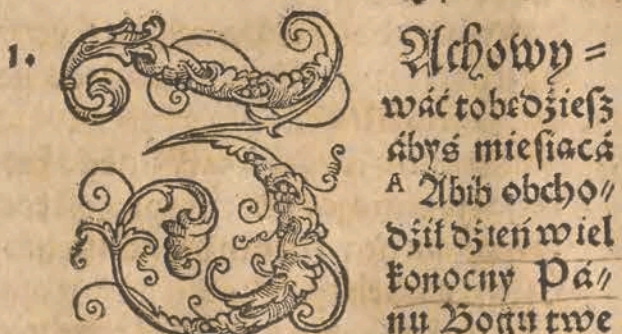 1. ZAchowy=
wáć tobędźieſz
ábyś mieſiącá
A Abib obcho⸗
dźił dźień wiel
konocny Pá⸗
nu Bogu twe